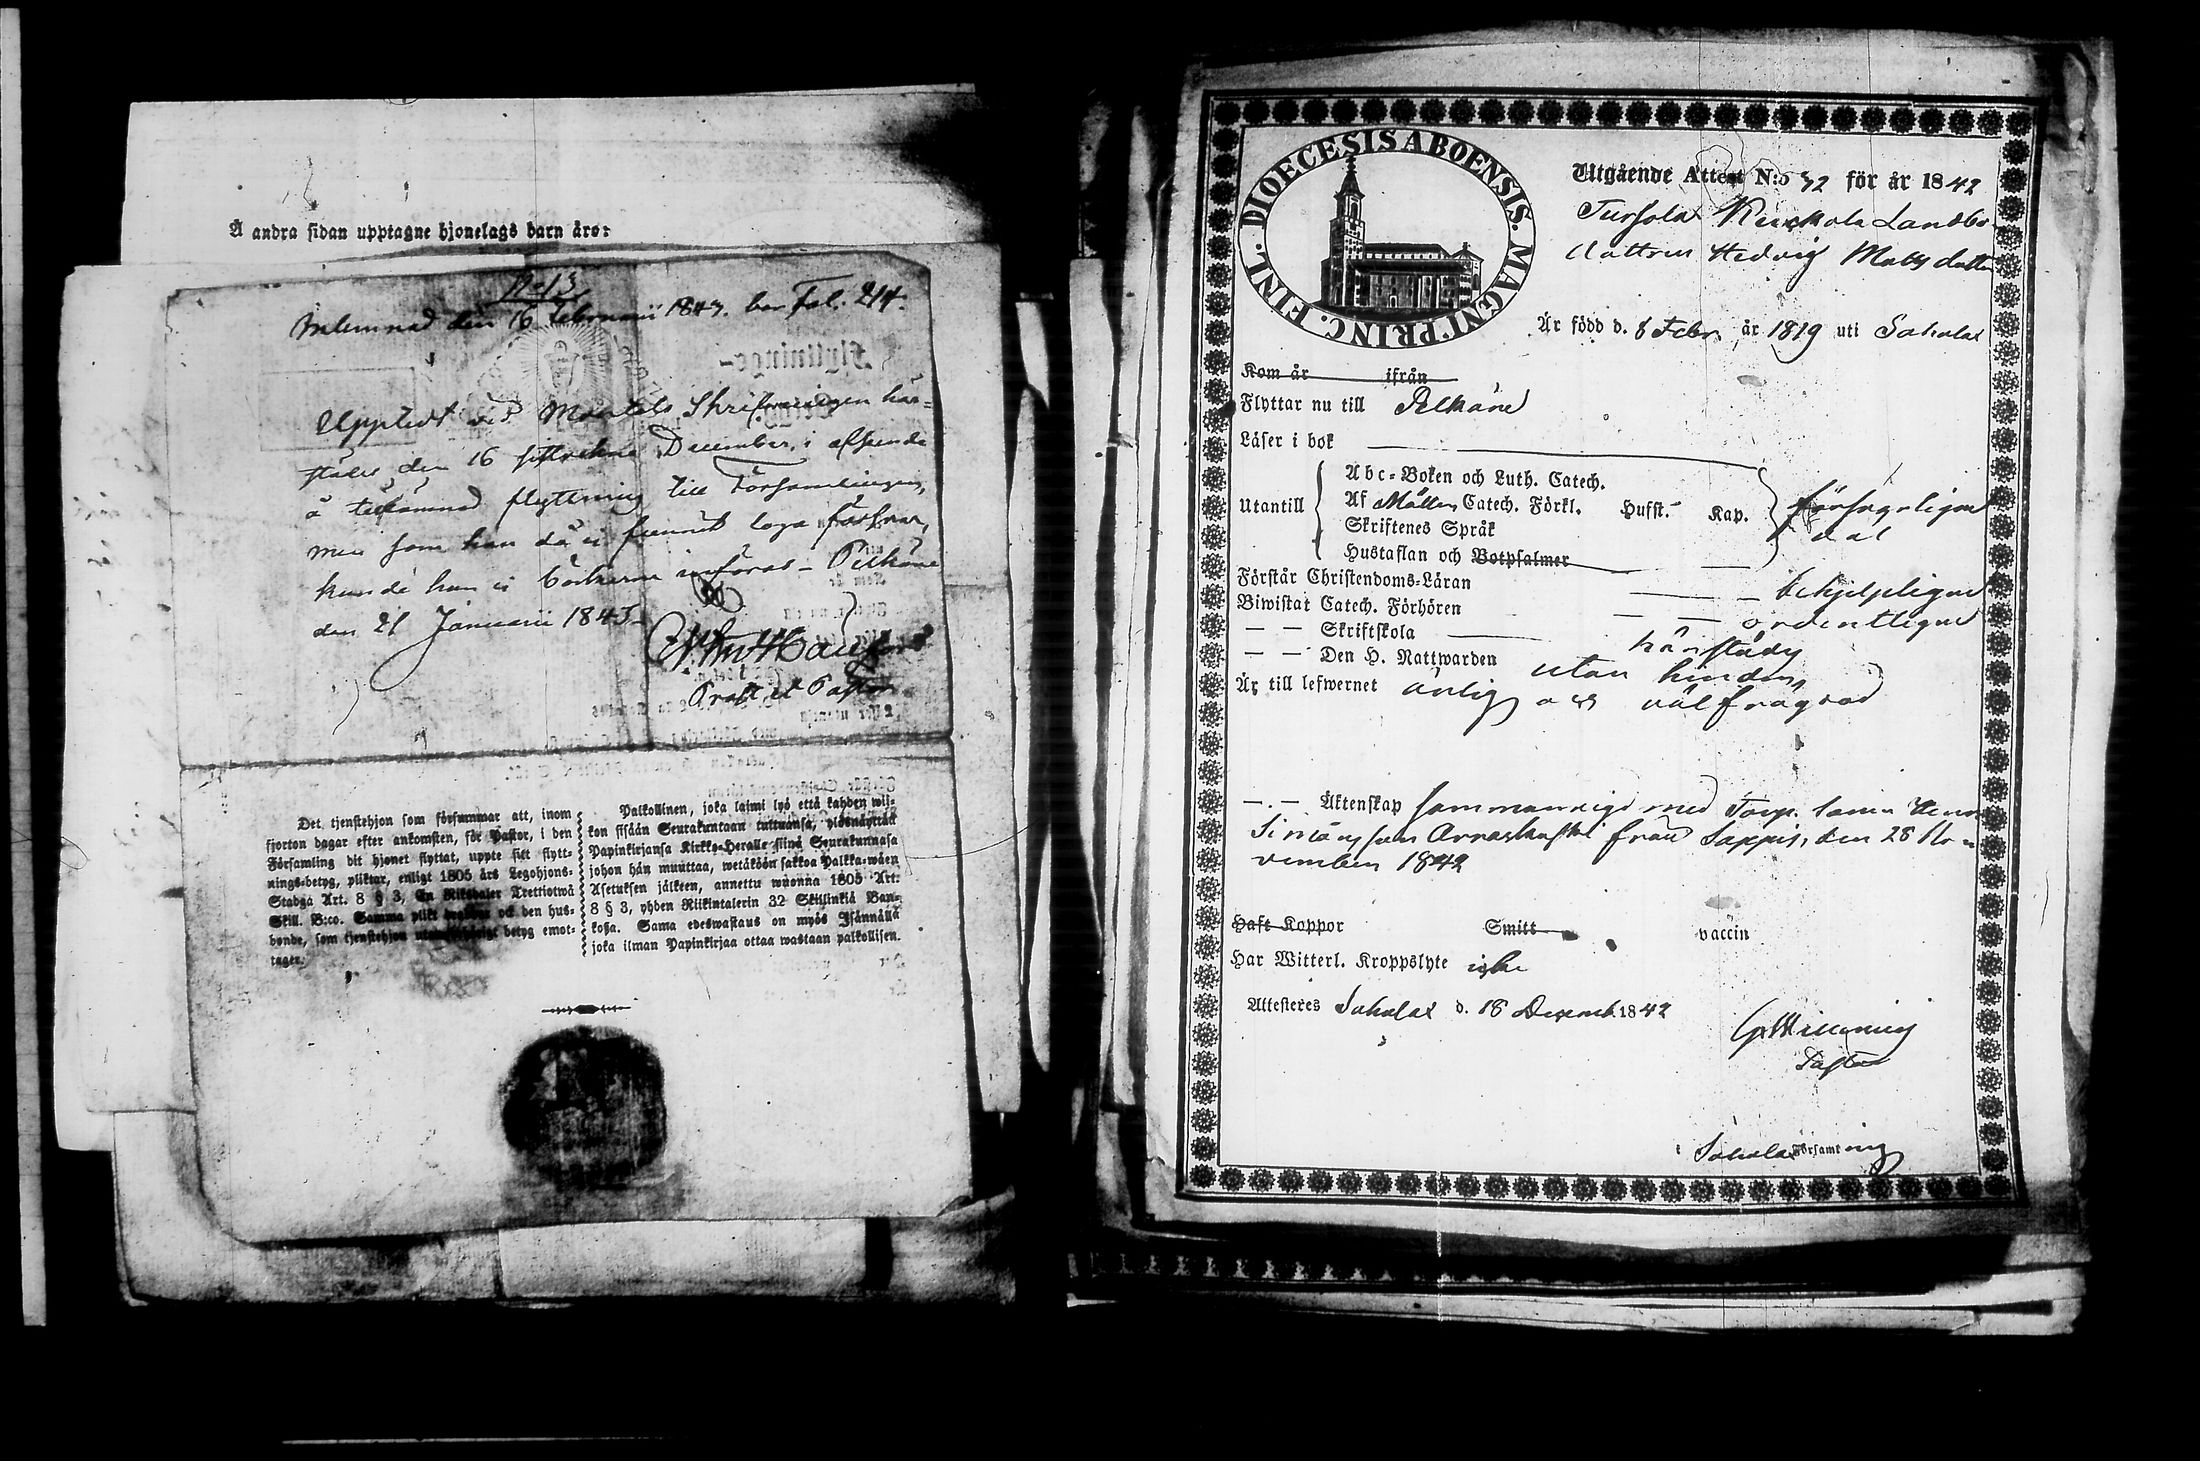 Å andra sidan upptagne hjonelags barn äro:
N:o 13
Inlemnad den 16 Februarii 1843. bor Fol. 214.
Upplest vid Mantals Skrifvningen här-
städes den 16 sistvekne December, i afseende
å tillämnad flyttning till Församlingen,
men som han då ei funnit laga försvar,
kunde han ei i böckerne införas – Pelkäne
den 21 Januarii 1843.
Prost et Pastor
Det tjenstehjon som försummar att, inom
fjorton dagar efter ankomsten, för Pastor, i den
Församling dit hjonet flyttat, uppte sitt flytt-
nings-betyg, pliktar, enligt 1805 års Legohjons-
Stadga Art. 8 § 3, En Riksdaler Trettiotwå
Skill. B:co. Samma plikt ock den hus-
bonde, som tjenstehjon utan betyg emot-
tager.
Palkollinen, joka laimi lyö että kahden wii-
kon sisään Seurakuntaan tultuansa, ylösnäyttää
Papinkirjansa Kirkko-Heralle siinä Seurakunnasa
johon hän muuttaa, wetäköön sakkoa Palkka-wäen
Asetuksen jälkeen, annettu wuonna 1805 Art.
8 § 3, yhden Riikintalerin 32 Skillinkiä Ban-
kosa. Sama edeswastaus on myös Isännällä
joka ilman Papinkirjaa ottaa wastaan palkollisen.
DIOECESIS ABOENSIS. MAGNI PRINC. FINL.
Utgående Attest N:o 32 för år 1842
Landbo-
dottren Hedvig Matsdotter
Är född d. 8 Febr. år 1819 uti Sahalax
Kom år ifrån
Flyttar nu till Pelkäne
Läser i bok
Utantill
Abc-Boken och Luth. Catech.
Af Möllers Catech. Förkl. Husst. Kap.
Skriftenes Språk
Hustaflan och Botpsalmer
försvarligen
Förstår Christendoms-Läran behjelpligen
Biwistat Catech. Förhören ordentligen
— — Skriftskola härstädes
— — Den H. Nattwarden utan hinder
Är till lefwernet ärlig och välfrägdad
— . — Äktenskap sammanvigd med Torp. sonen
Simonsson från Sappis, den 28 No-
vember 1842
Haft Koppor Smitt vaccin
Har Witterl. Kroppslyte icke
Attesteres Sahalax d. 18 Decemb. 1842
Pastor
i Sahalax Församling